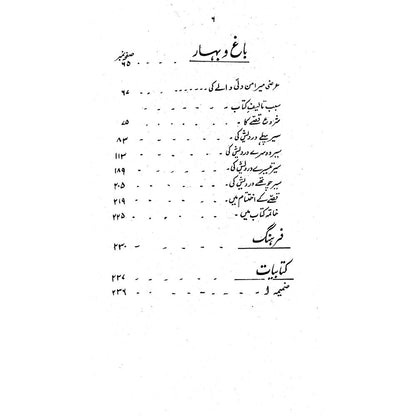 ۶
باغ و بہار صفحہ نمبر
۶۵
عرضی میرامن دلی والے کی ۶۷
سبب تالیف کتاب
شروع قصّے کا ۷۵
سیر پہلے درویش کی ۸۳
سیر دوسرے درویش کی ۱۱۳
سیر تیسرے درویش کی ۱۸۹
سیر چوتھے درویش کی ۲۰۵
قصّے کے اختتام میں ۲۱۹
خاتمہ کتاب میں ۲۲۵
فرہنگ ۲۳۰
کتابیات ۲۳۷
ضمیمہ ا ۲۳۹